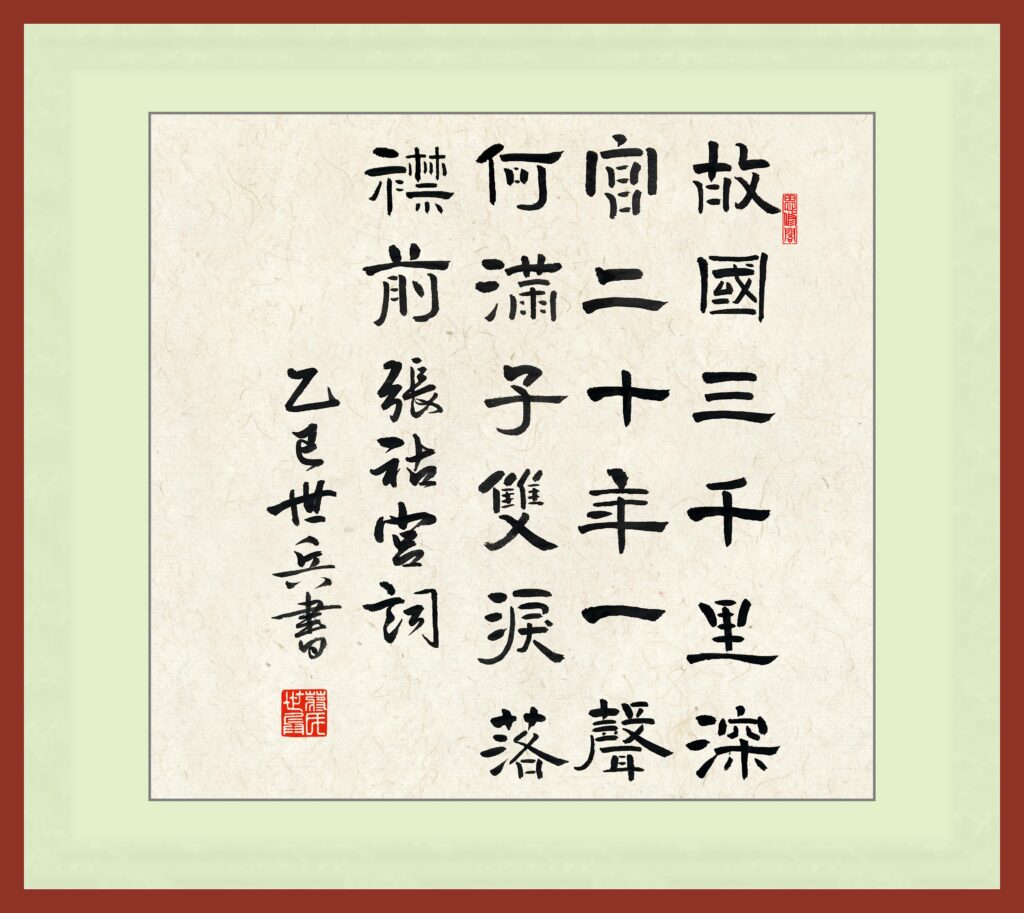 故國三千里深
宮二十年一聲
何滿子雙淚落
襟前張祜宮詞
乙巳世兵書
蔣氏世兵